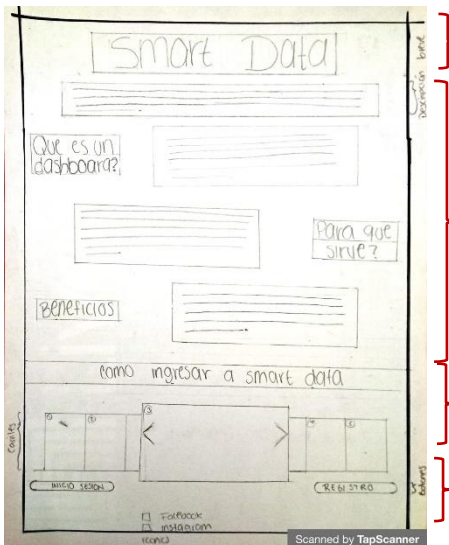 Smart Data
Descripción breve
Que es un
dashboard?
Para que
sirve?
Beneficios
como ingresar a smart data
1
2
3
INICIO SESION
REGISTRO
botones
Facebook
Instagram
iconos
Scanned by TapScanner